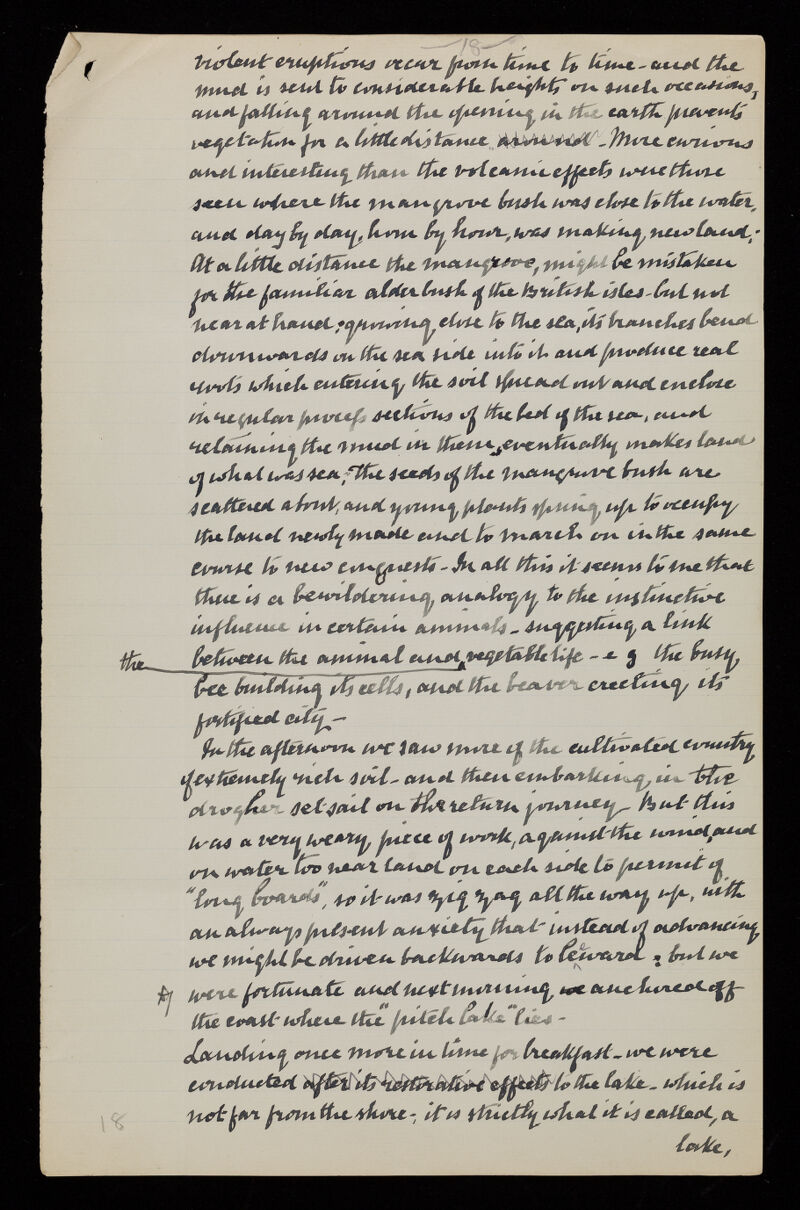 -18-
violent eruptions occur from time to time - and the
mud is sent to considerable heights on such occasions,
and falling around the opening in the earth prevents
vegetation for a little distance around - More curious
and interesting than the volcanic effects were those
seen where the mangrove bush was close to the water,
and day by day, hour by hour, was making new land;
At a little distance the mangrove, might be mistaken
for the familiar alder bush of the British isles - but not
near at hand; growing close to the sea, its branches bend
downwards on the sea side into it and produce real
roots which entering the soil spread out and enclose
in regular process sections of the bed of the sea, and
retaining the mud in them, eventually makes land
of what was sea; - The seeds of the mangrove bush are
scattered about, and young plants spring up to occupy
the land newly made and to march on in the same
course to new conquests - In all this it seems to me that
there is a bewildering analogy to the instinctive
influence in certain animals - suggesting a link
the between the animal and vegetable life - e g the busy
bee building its cells, and the beaver erecting its
fortified city -
In the afternoon we saw more of the cultivated country
of extremely rich soil - and then embarking in the
drogher set sail on the return journey - But this
was a very weary piece of work, against the wind, and
on water too near land on each side to permit of
"long boards", so it was zig zag all the way up, with
an always present anxiety that instead of advancing
we might be driven backwards to leeward; but we
were fortunate and next morning we anchored off
the coast where the "pitch lake" lies -
Landing once more in time for breakfast - we were
conducted after its restorative effects to the lake - which is
not far from the shore -; it is strictly what it is called, a
lake,
18